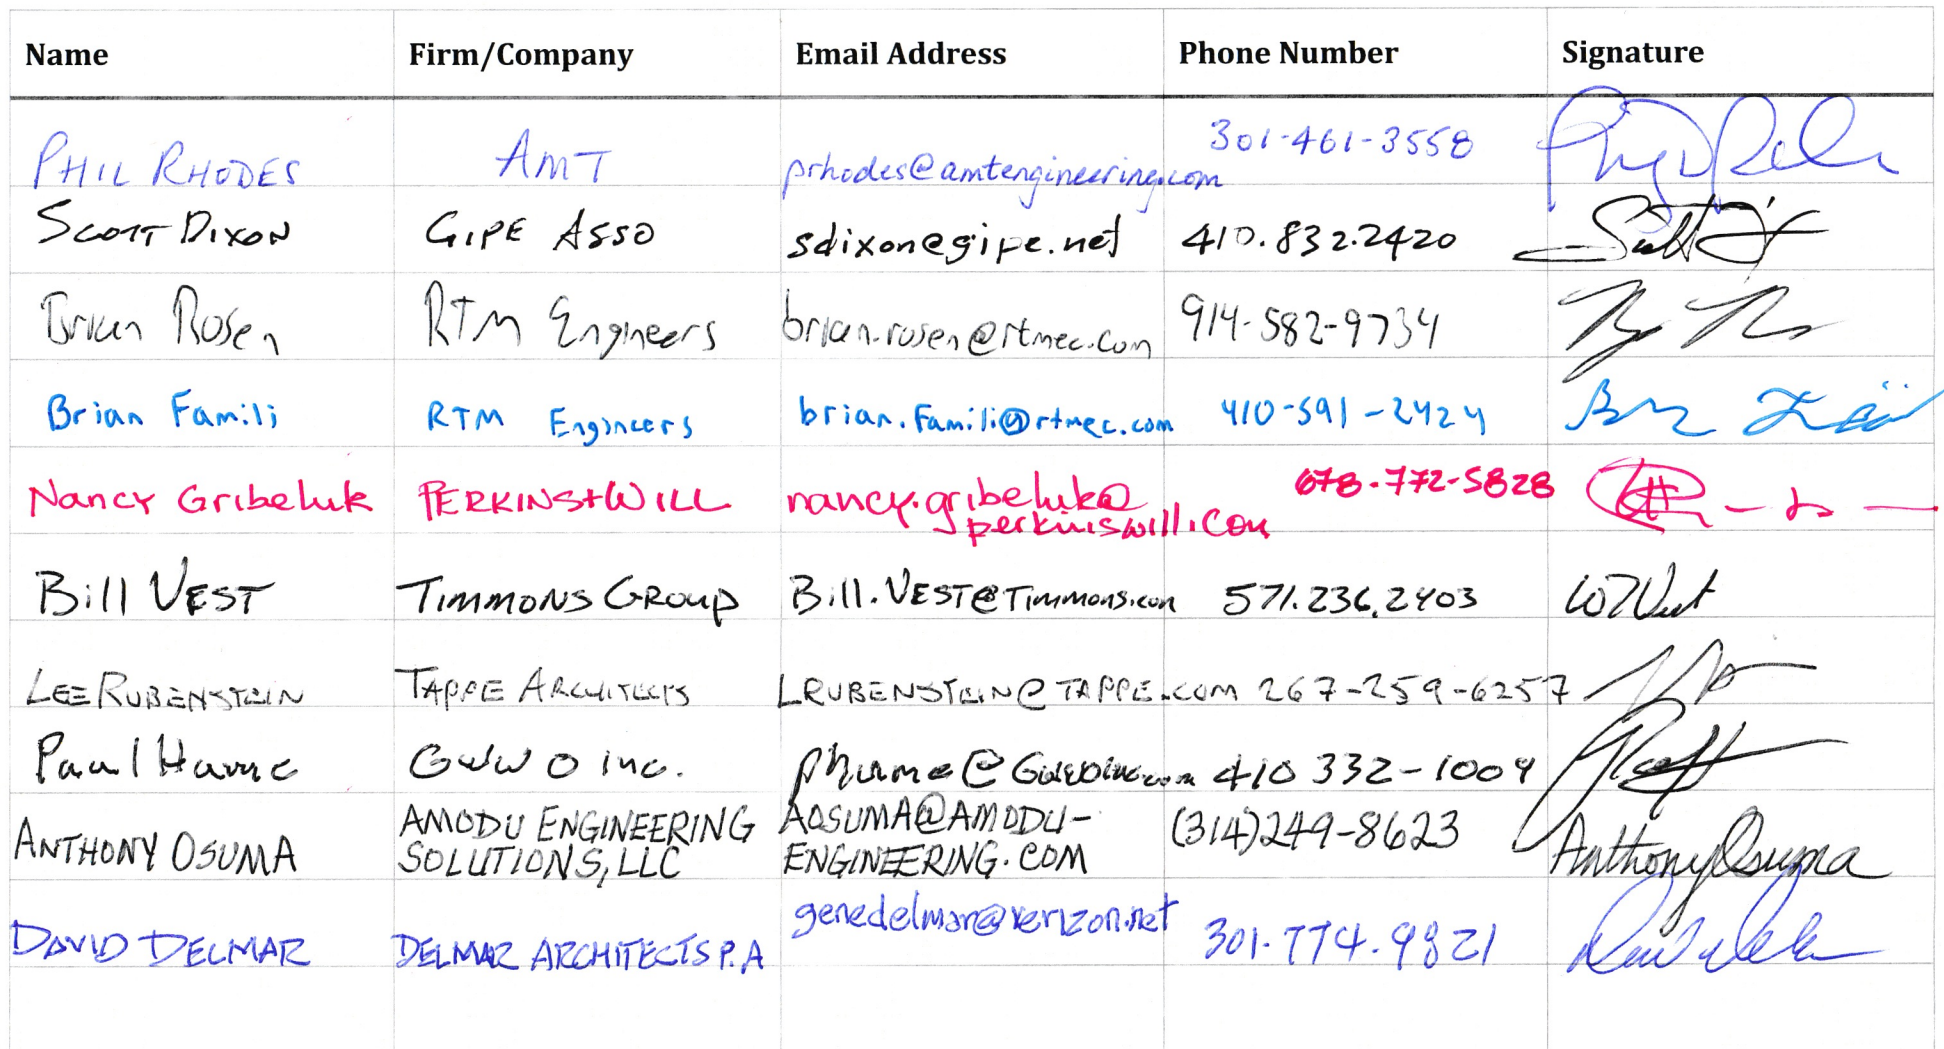 Name Firm/Company Email Address Phone Number Signature
PHIL RHODES AMT prhodes@amtengineering.com 301-461-3558
SCOTT DIXON GIPE ASSO sdixon@gipe.net 410.832.2420
Brian Rosen RTM Engineers brian.rosen@rtmec.com 914-582-9734
Brian Famili RTM Engineers brian.famili@rtmec.com 410-591-2424
Nancy Gribeluk PERKINS+WILL nancy.gribeluk@ 678-772-5828
perkinswill.com
Bill VEST TIMMONS GROUP Bill.VEST@TIMMONS.com 571.236.2403
LEE RUBENSTEIN TAPPE ARCHITECTS LRUBENSTEIN@TAPPE.COM 267-259-6257
Paul Hume GWWO inc. phume@GWWOinc.com 410 332-1009
ANTHONY OSUMA AMODU ENGINEERING AOSUMA@AMODU- (314)249-8623 Anthony Osuma
SOLUTIONS, LLC ENGINEERING.COM
DAVID DELMAR DELMAR ARCHITECTS P.A genedelmar@verizon.net 301.774.9821